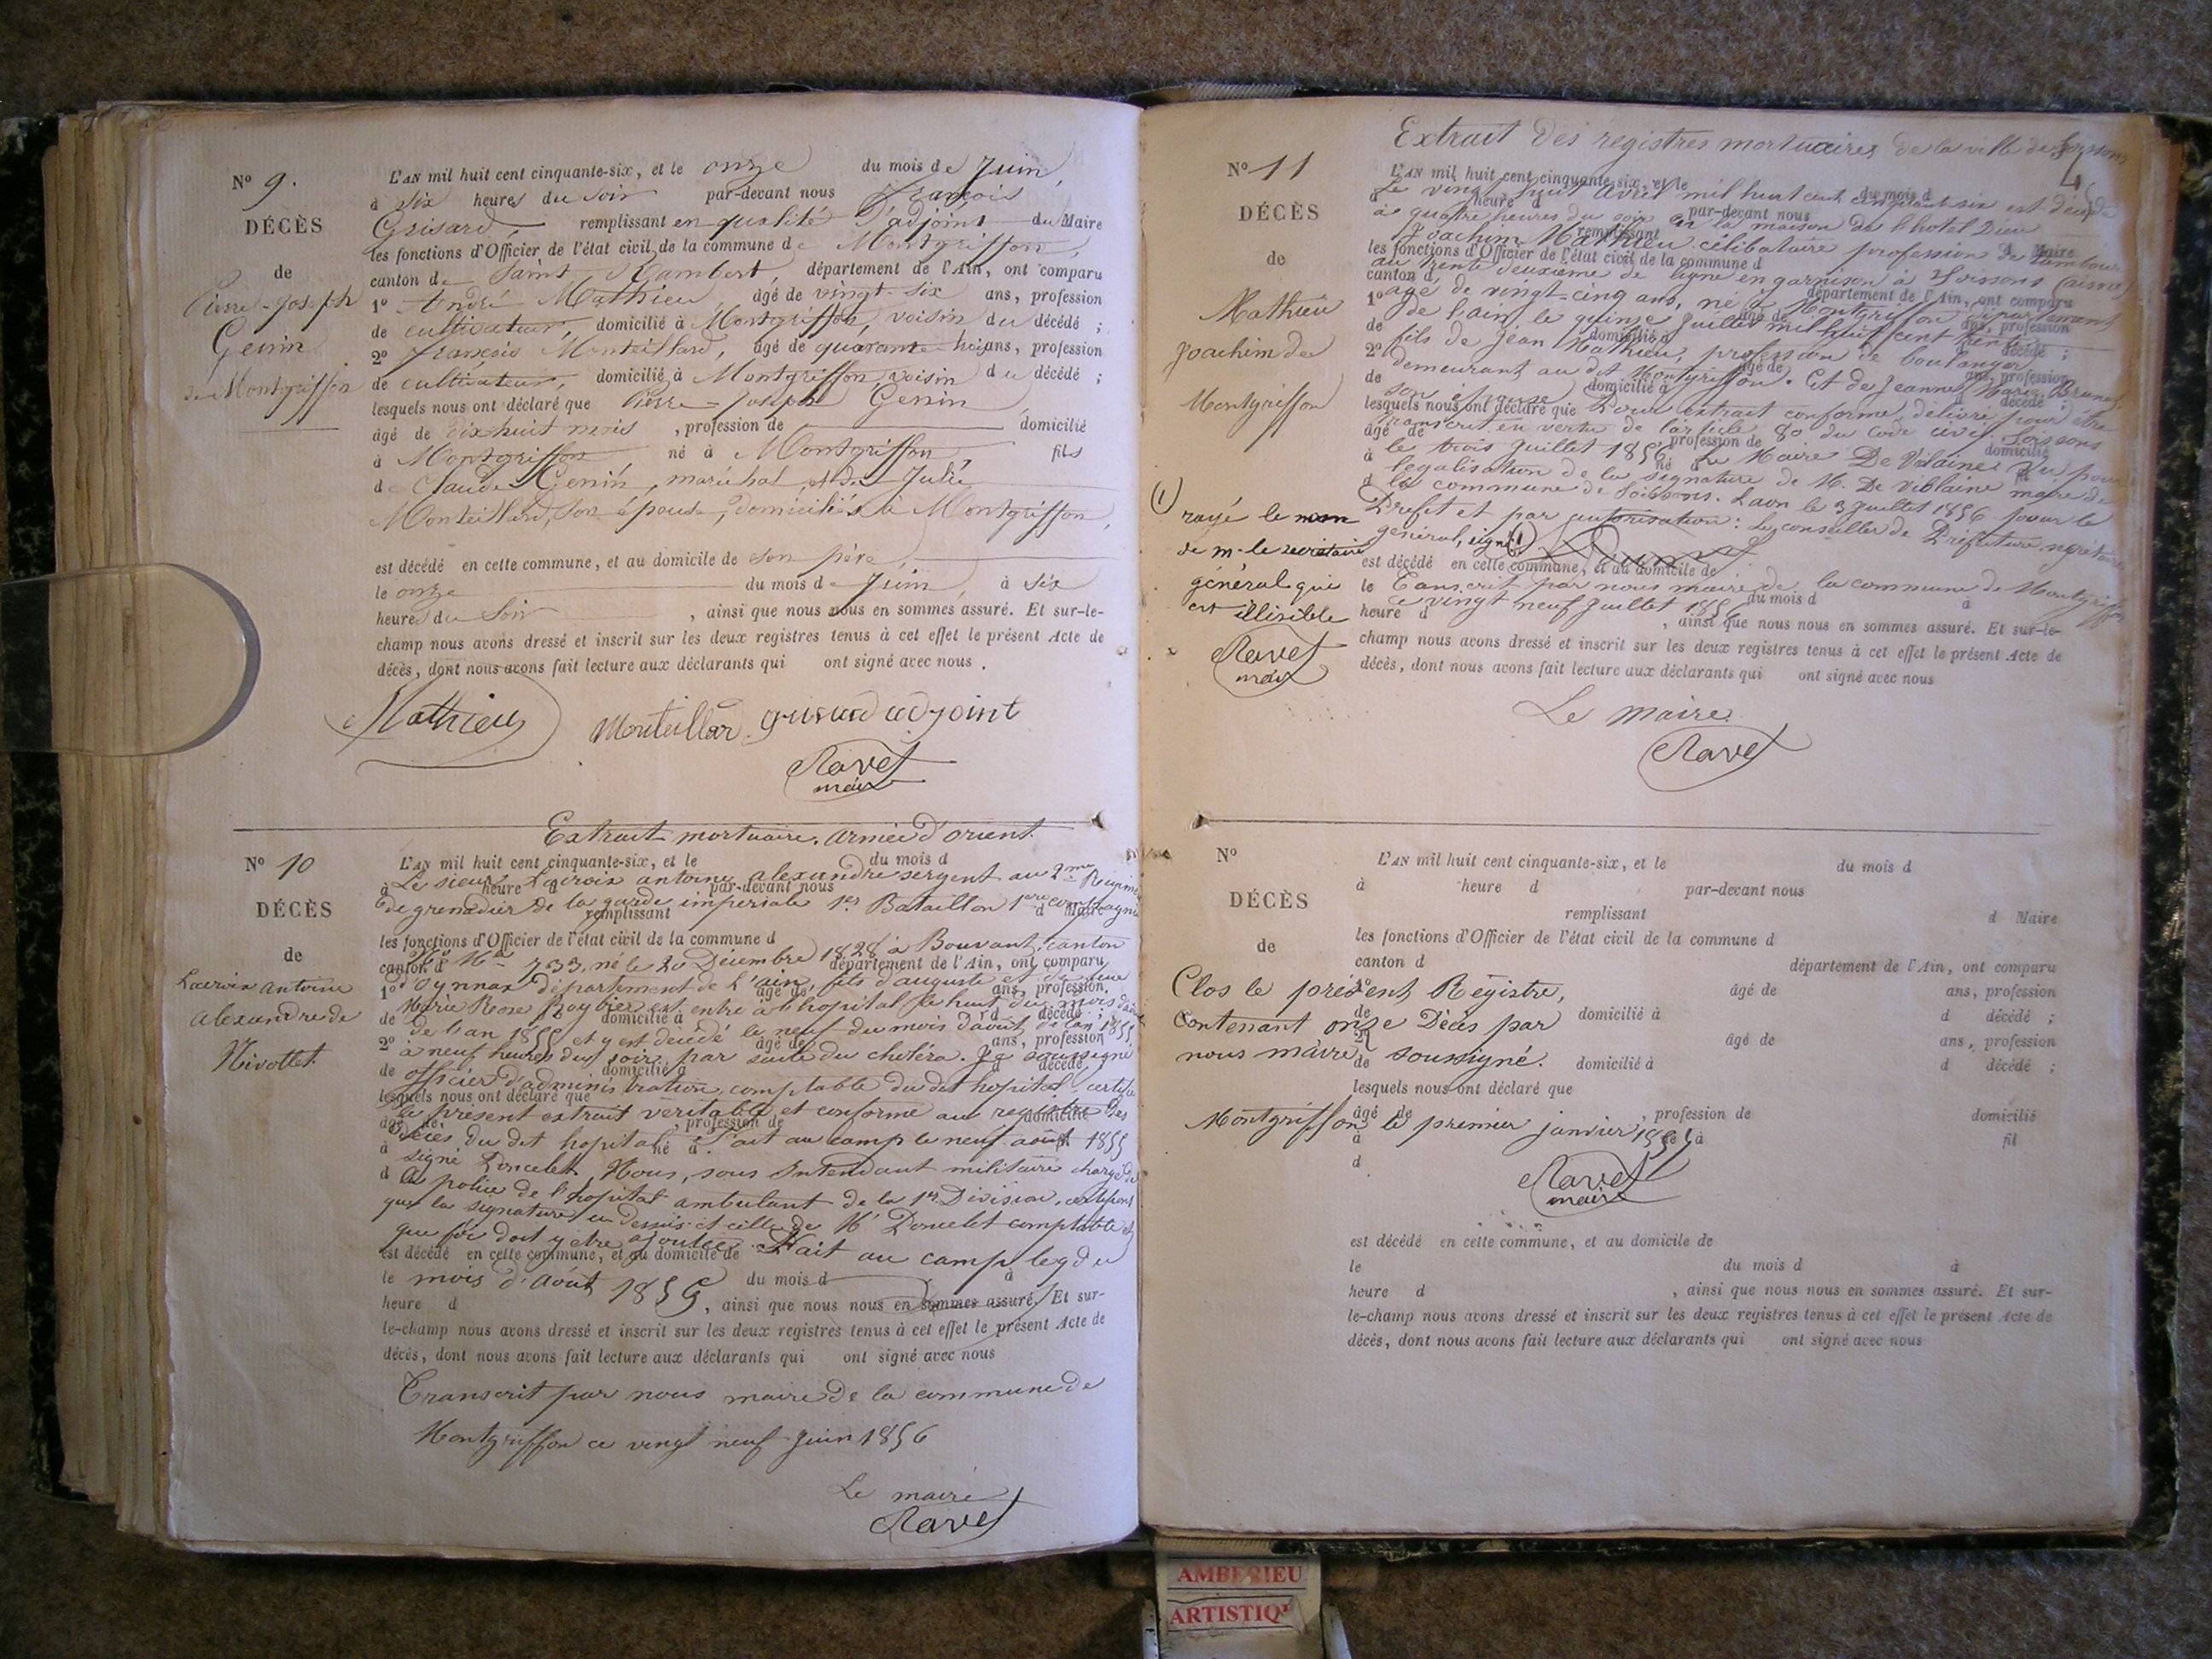 N° 9.
DÉCÈS
de
Pierre-Joseph
Genin
de Montgriffon
L'AN mil huit cent cinquante-six, et le onze du mois de Juin,
à six heures du soir par-devant nous François
Grisard, remplissant en qualité d'adjoint du Maire
les fonctions d'Officier de l'état civil de la commune de Montgriffon,
canton de Saint Rambert, département de l'Ain, ont comparu
1° André Mathieu, âgé de vingt-six ans, profession
de cultivateur, domicilié à Montgriffon, voisin du décédé ;
2° François Monteillard, âgé de quarante huit ans, profession
de cultivateur, domicilié à Montgriffon, voisin du décédé ;
lesquels nous ont déclaré que Pierre-Joseph Genin
âgé de dix huit mois, profession de domicilié
à Montgriffon né à Montgriffon, fils
de Claude Genin, maréchal, et de Julie
Monteillard, son épouse, domiciliés à Montgriffon,
est décédé en cette commune, et au domicile de son père,
le onze du mois de Juin, à six
heures du soir, ainsi que nous nous en sommes assuré. Et sur-le-
champ nous avons dressé et inscrit sur les deux registres tenus à cet effet le présent Acte de
décès, dont nous avons fait lecture aux déclarants qui ont signé avec nous.
Mathieu Monteillard grisard adjoint
Ravet
maire
Extrait mortuaire. armée d'orient.
N° 10
DÉCÈS
de
Lacroix Antoine
alexandre de
Nivollet.
L'AN mil huit cent cinquante-six, et le du mois d
à heure d par-devant nous
Le sieur Lacroix antoine alexandre sergent au 2me Régiment
de grenadier de la garde imperiale 1er Bataillon 1ere compagnie
remplissant d Maire
les fonctions d'Officier de l'état civil de la commune d
733, né le 20 Décembre 1828 à Bouvant, canton
canton d département de l'Ain, ont comparu
d'oynnax département de l'ain, fils d'auguste et de
1° âgé de ans, profession
Marie Rose est entré à l'hopital le huit du mois d'août
de domicilié à d décédé ;
de l'an 1855 et y est décédé le neuf du mois d'août de l'an 1855
2° âgé de ans, profession
à neuf heures du soir, par suite du choléra. Je soussigné
de domicilié à d décédé ;
officier d'administration comptable du dit hopital certifie
lesquels nous ont déclaré que
le présent extrait véritable et conforme au registre des
âgé de, profession de domicilié
décès du dit hopital. Fait au camp le neuf août 1855
à né à
signé Doncelet. Nous, sous Intendant militaire chargé de
d
la police de l'hopital ambulant de la 1re Division, certifions
que la signature ci dessus est celle de Mr Doncelet comptable et
que foi doit y etre ajoutée. Fait au camp le 9 du
est décédé en cette commune, et au domicile de
le mois d'Août 1855 du mois d à
heure d, ainsi que nous nous en sommes assuré. Et sur-
le-champ nous avons dressé et inscrit sur les deux registres tenus à cet effet le présent Acte de
décès, dont nous avons fait lecture aux déclarants qui ont signé avec nous
Transcrit par nous maire de la commune de
Montgriffon ce vingt neuf Juin 1856
Le maire
Ravet
Extrait des registres mortuaires de la ville de Soissons
4
N° 11
DÉCÈS
de
Mathieu
Joachim de
Montgriffon
L'AN mil huit cent cinquante-six, et le du mois d
Le vingt huit avril mil huit cent cinquante six est décédé
à heure d par-devant nous
à quatre heures du soir en la maison de l'hotel Dieu
remplissant d Maire
Joachim Mathieu célibataire profession de tambour
les fonctions d'Officier de l'état civil de la commune d
au trente deuxieme de ligne en garnison à Soissons (aisne)
canton d département de l'Ain, ont comparu
agé de vingt-cinq ans, né à Montgriffon département
1° âgé de ans, profession
de l'ain le quinze Juillet mil huit cent trente
de domicilié à d décédé ;
fils de jean Mathieu, profession de boulanger
2° âgé de ans, profession
demeurant au dit Montgriffon. Et de Jeanne Marie Brunet
de domicilié à d décédé ;
son épouse. Pour extrait conforme, délivré pour être
lesquels nous ont déclaré que
transcrit en vertu de l'article 80 du code civil. Soissons
âgé de, profession de domicilié
le trois Juillet 1856. Le Maire De Vilaine. Vu pour
à né à fil
légalisation de la signature de M. De Villaine maire de
d
la commune de Soissons. Laon le 3 Juillet 1856 pour le
Prefet et par autorisation : Le conseiller de Préfecture, secrétaire
général, signé (1)
est décédé en cette commune, et au domicile de
le du mois d à
Transcrit par nous maire de la commune de Montgriffon
ce vingt neuf Juillet 1856
heure d, ainsi que nous nous en sommes assuré. Et sur-le-
champ nous avons dressé et inscrit sur les deux registres tenus à cet effet le présent Acte de
décès, dont nous avons fait lecture aux déclarants qui ont signé avec nous
(1)
rayé le nom
de m. le secrétaire
général qui
est illisible
Ravet
maire
Le maire
Ravet
N°
DÉCÈS
de
L'AN mil huit cent cinquante-six, et le du mois d
à heure d par-devant nous
remplissant d Maire
les fonctions d'Officier de l'état civil de la commune d
canton d département de l'Ain, ont comparu
Clos le présent Registre,
1° âgé de ans, profession
de domicilié à d décédé ;
contenant onze Décès par
2° âgé de ans, profession
nous maire soussigné.
de domicilié à d décédé ;
lesquels nous ont déclaré que
âgé de, profession de domicilié
Montgriffon le premier janvier
à né à fil
d
Ravet
maire
est décédé en cette commune, et au domicile de
le du mois d à
heure d, ainsi que nous nous en sommes assuré. Et sur-
le-champ nous avons dressé et inscrit sur les deux registres tenus à cet effet le présent Acte de
décès, dont nous avons fait lecture aux déclarants qui ont signé avec nous
AMBERIEU
ARTISTIQU